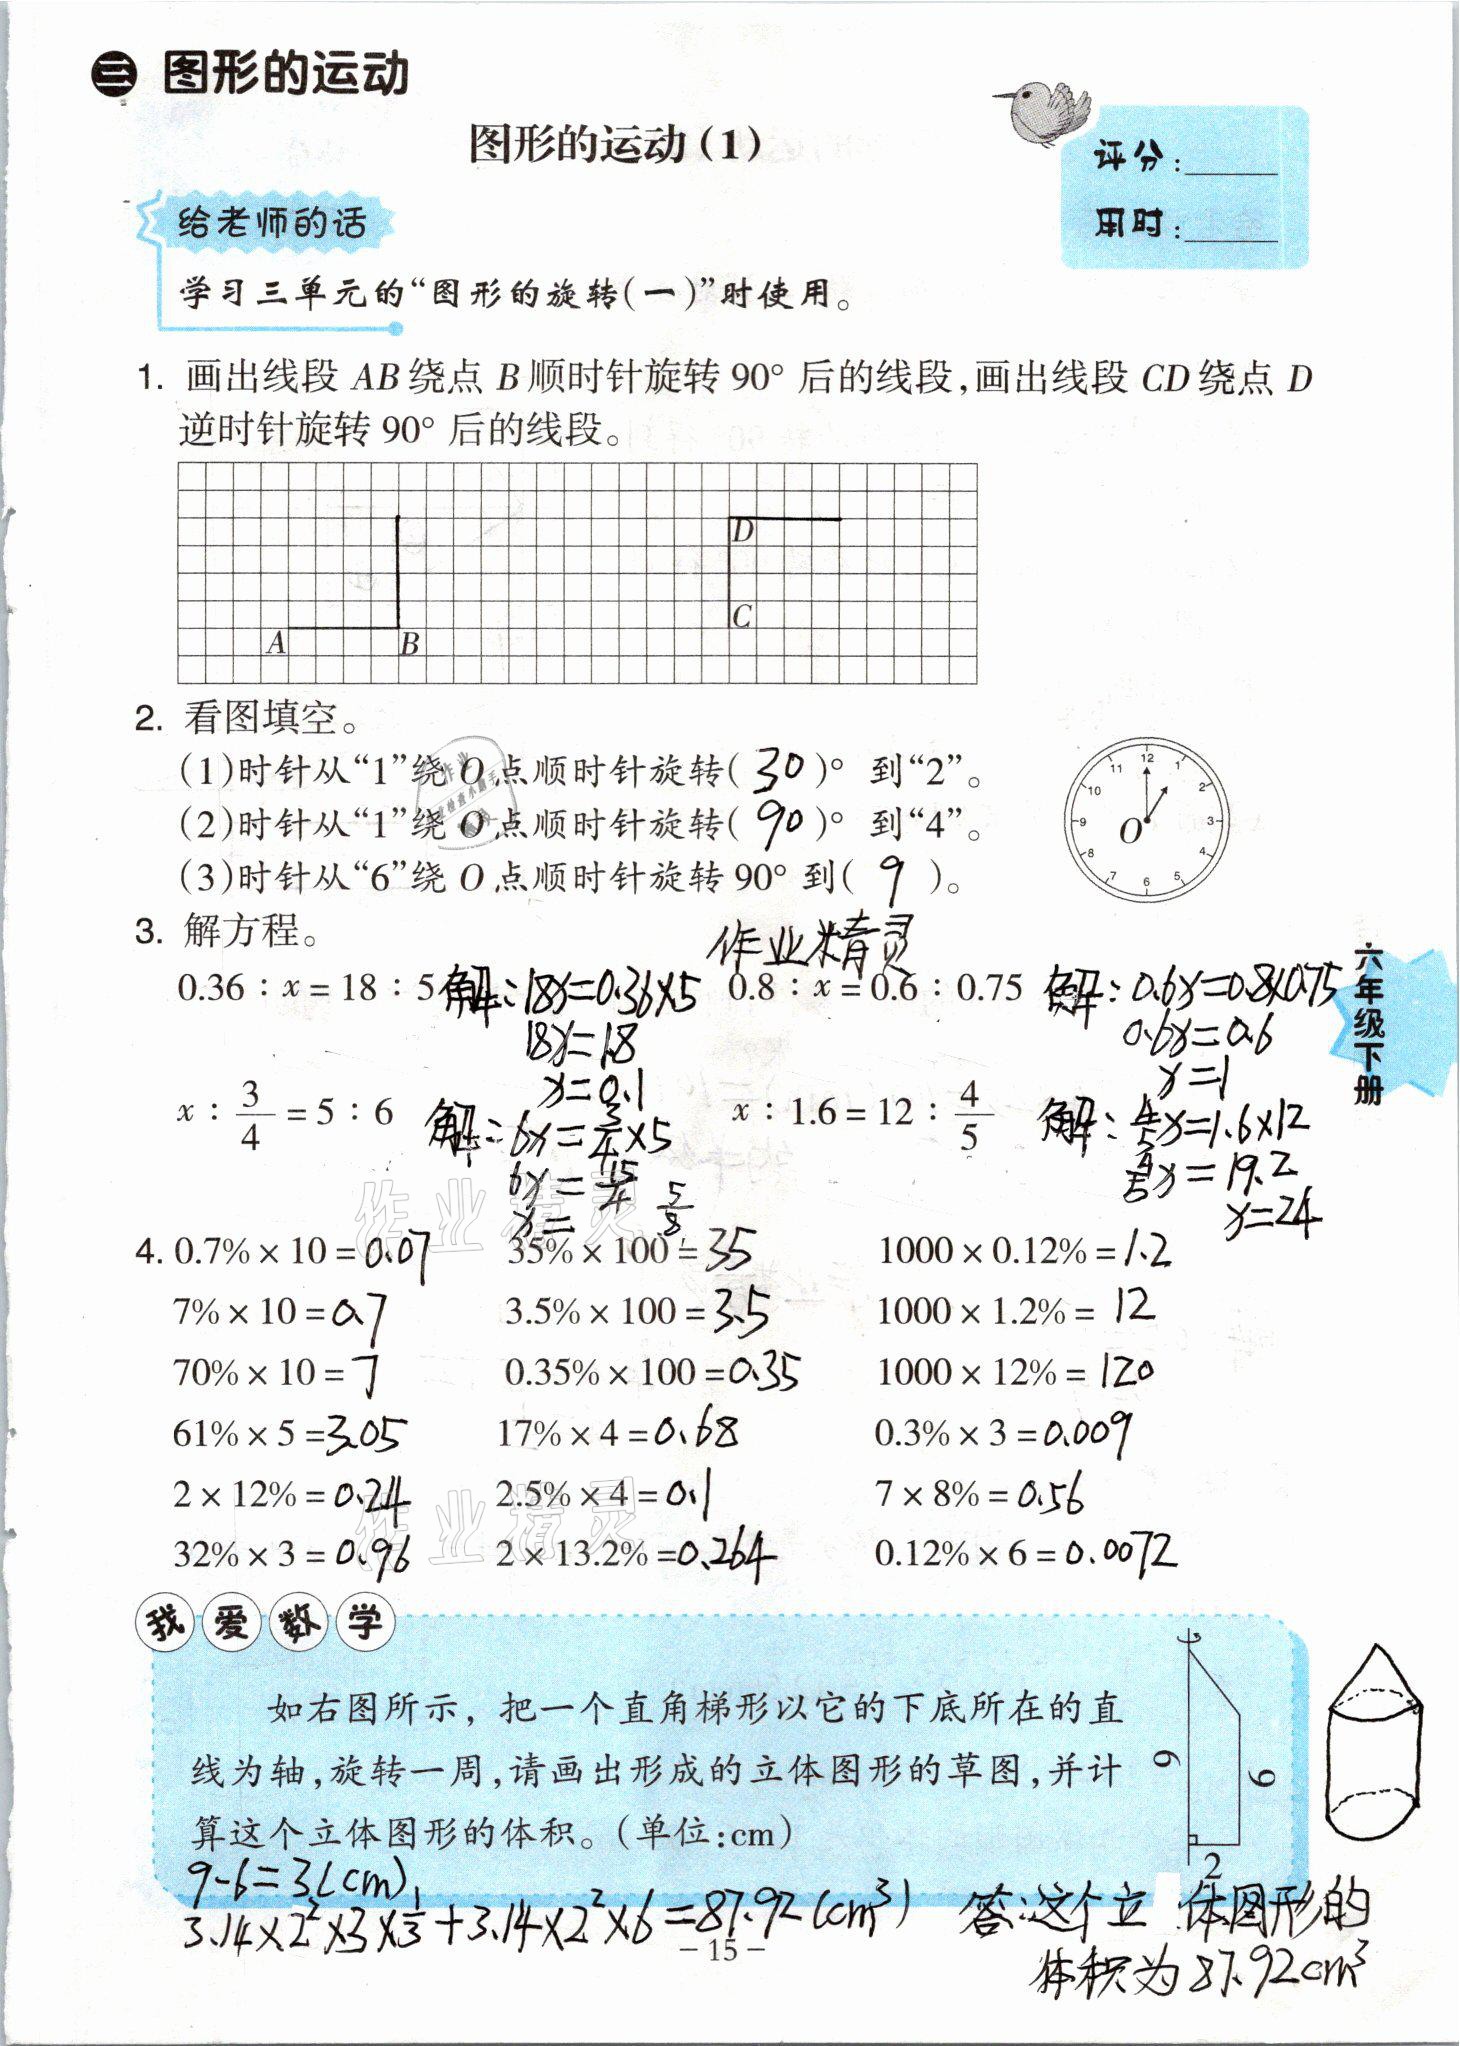 三 图形的运动
图形的运动(1)
评分:
用时:
给老师的话
学习三单元的“图形的旋转(一)”时使用。
1. 画出线段 AB绕点 B顺时针旋转 90° 后的线段,画出线段 CD绕点 D
逆时针旋转 90° 后的线段。
D
C
A B
2. 看图填空。
(1)时针从“1”绕 O点顺时针旋转( 30 )° 到“2”。
(2)时针从“1”绕 O点顺时针旋转( 90 )° 到“4”。
(3)时针从“6”绕 O点顺时针旋转 90° 到( 9 )。
12 1 2 3 4 5 6 7 8 9 10 11
O
3. 解方程。
作业精灵
0.36 : x = 18 : 5 解:18x=0.36×5
18x=1.8
x=0.1
0.8 : x = 0.6 : 0.75 解:0.6x=0.8×0.75
0.6x=0.6
x=1
x : 3/4 = 5 : 6 解:6x=3/4×5
6x=15/4
x= 5/8
x : 1.6 = 12 : 4/5 解:4/5x=1.6×12
4/5x=19.2
x=24
六年级下册
4. 0.7% × 10 = 0.07 35% × 100 = 35 1000 × 0.12% = 1.2
7% × 10 = 0.7 3.5% × 100 = 3.5 1000 × 1.2% = 12
70% × 10 = 7 0.35% × 100 = 0.35 1000 × 12% = 120
61% × 5 = 3.05 17% × 4 = 0.68 0.3% × 3 = 0.009
2 × 12% = 0.24 2.5% × 4 = 0.1 7 × 8% = 0.56
32% × 3 = 0.96 2 × 13.2% = 0.264 0.12% × 6 = 0.0072
作业精灵
作业精灵
我爱数学
如右图所示，把一个直角梯形以它的下底所在的直
线为轴,旋转一周,请画出形成的立体图形的草图,并计
算这个立体图形的体积。(单位:cm)
9
6
2
9-6=3(cm)
3.14×2²×3×1/3+3.14×2²×6=87.92(cm³)
答:这个立体图形的
体积为87.92cm³
- 15 -